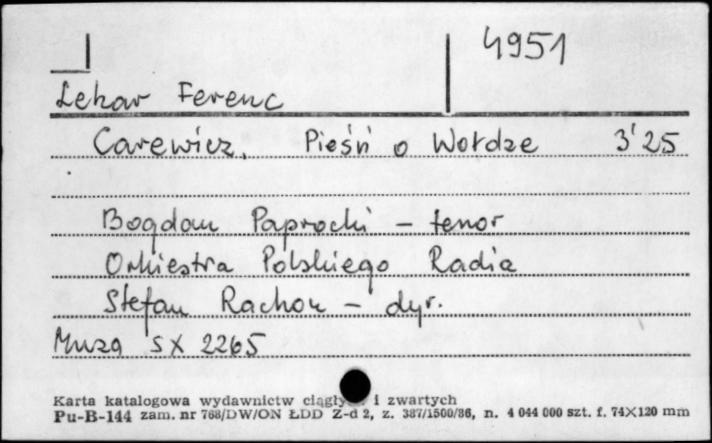 4951
Lehar Ferenc
Carewicz. Pieśń o Wołdze 3'25
Bogdan Paprocki – tenor
Orkiestra Polskiego Radia
Stefan Rachoń – dyr.
Muza SX 2265
Karta katalogowa wydawnictw ciągłych i zwartych
Pu-B-144 zam. nr 768/DW/ON ŁDD Z-d 2, z. 387/1500/86, n. 4 044 000 szt. f. 74×120 mm